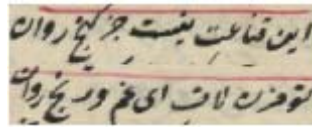 این قناعت نیست جز گنج روان
تو مزن لاف ای غم و رنج روان